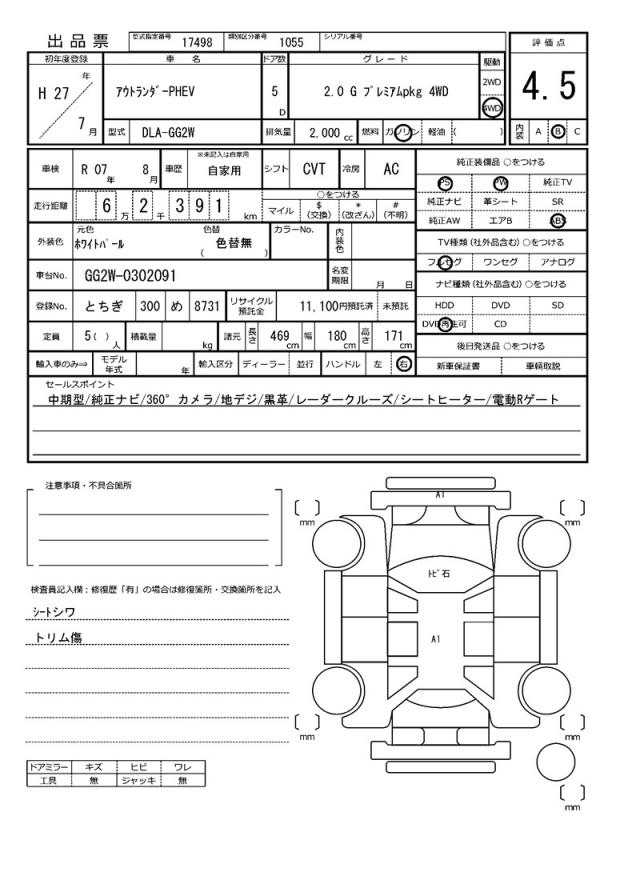 出品票 型式指定番号 17498 類別区分番号 1055 シリアル番号
初年度登録 車名 ドア数 グレード 駆動 評価点
H 27 年 7 月 アウトランダｰPHEV 5 D 2.0 G プレミアムpkg 4WD 2WD 4WD 4.5
型式 DLA-GG2W 排気量 2,000 cc 燃料 ガソリン 軽油 ( ) 内装 A B C
車検 R 07 年 8 月 車歴 ※未記入は自家用 自家用 シフト CVT 冷房 AC
走行距離 6 万 2 千 3 9 1 km ○をつける マイル $ (交換) * (改ざん) # (不明)
外装色 元色 ホワイトパール 色替 ( 色替無 ) カラーNo. 内装色
車台No. GG2W-0302091 名変期限 月 日
登録No. とちぎ 300 め 8731 リサイクル預託金 11,100円預託済 未預託
定員 5( ) 人 積載量 kg 諸元 長さ 469 cm 幅 180 cm 高さ 171 cm
輸入車のみ⇒ モデル年式 年 輸入区分 ディーラー 並行 ハンドル 左 右
純正装備品 ○をつける
PS PW 純正TV
純正ナビ 革シート SR
純正AW エアB ABS
TV種類 (社外品含む) ○をつける
フルセグ ワンセグ アナログ
ナビ種類 (社外品含む) ○をつける
HDD DVD SD
DVD再生可 CD
後日発送品 ○をつける
新車保証書 車輌取説
セールスポイント
中期型/純正ナビ/360°カメラ/地デジ/黒革/レーダークルーズ/シートヒーター/電動Rゲート
注意事項・不具合箇所
検査員記入欄：修復歴「有」の場合は修復箇所・交換箇所を記入
シートシワ
トリム傷
ドアミラー キズ ヒビ ワレ
工具 無 ジャッキ 無
A1
[ ] mm
[ ] mm
トビ石
A1
[ ] mm
[ ] mm
[ ] mm